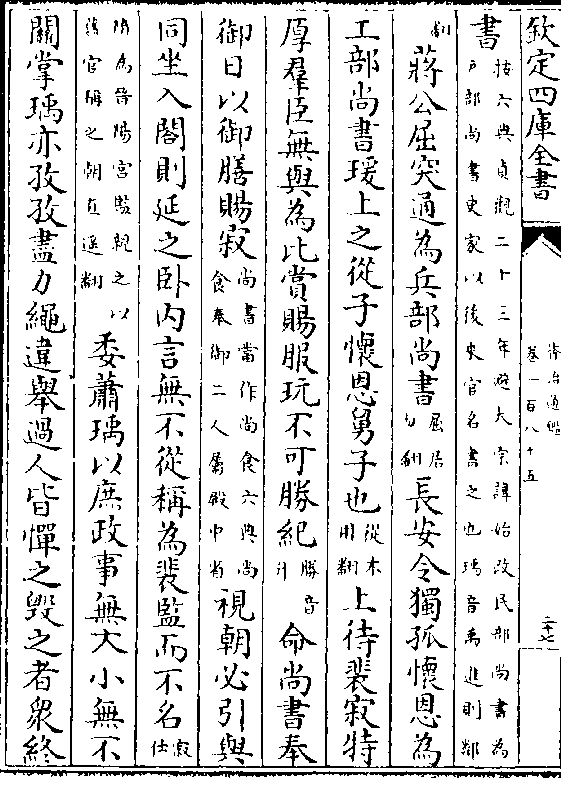 欽定四庫全書
資治通鑑
卷一百八十五
二七
書按六典貞觀二十三年避太宗諱始改民部尚書為
戶部尚書史家以後來官名書之也瑀音禹進則鄰
翻蔣公屈突通為兵部尚書屈居勿翻長安令獨孤懷恩為
工部尚書瑗上之從子懷恩舅子也從才用翻上待裴寂特
厚羣臣無與為比賞賜服玩不可勝紀勝音升命尚書奉
御日以御膳賜寂尚書當作尚食六典尚食奉御二人屬殿中省視朝必引與
同坐入閣則延之卧内言無不從稱為裴監而不名寂仕
隋為晉陽宮監親之以舊官稱之朝直遥翻委蕭瑀以庶政事無大小無不
關掌瑀亦孜孜盡力繩違舉過人皆憚之毁之者衆終